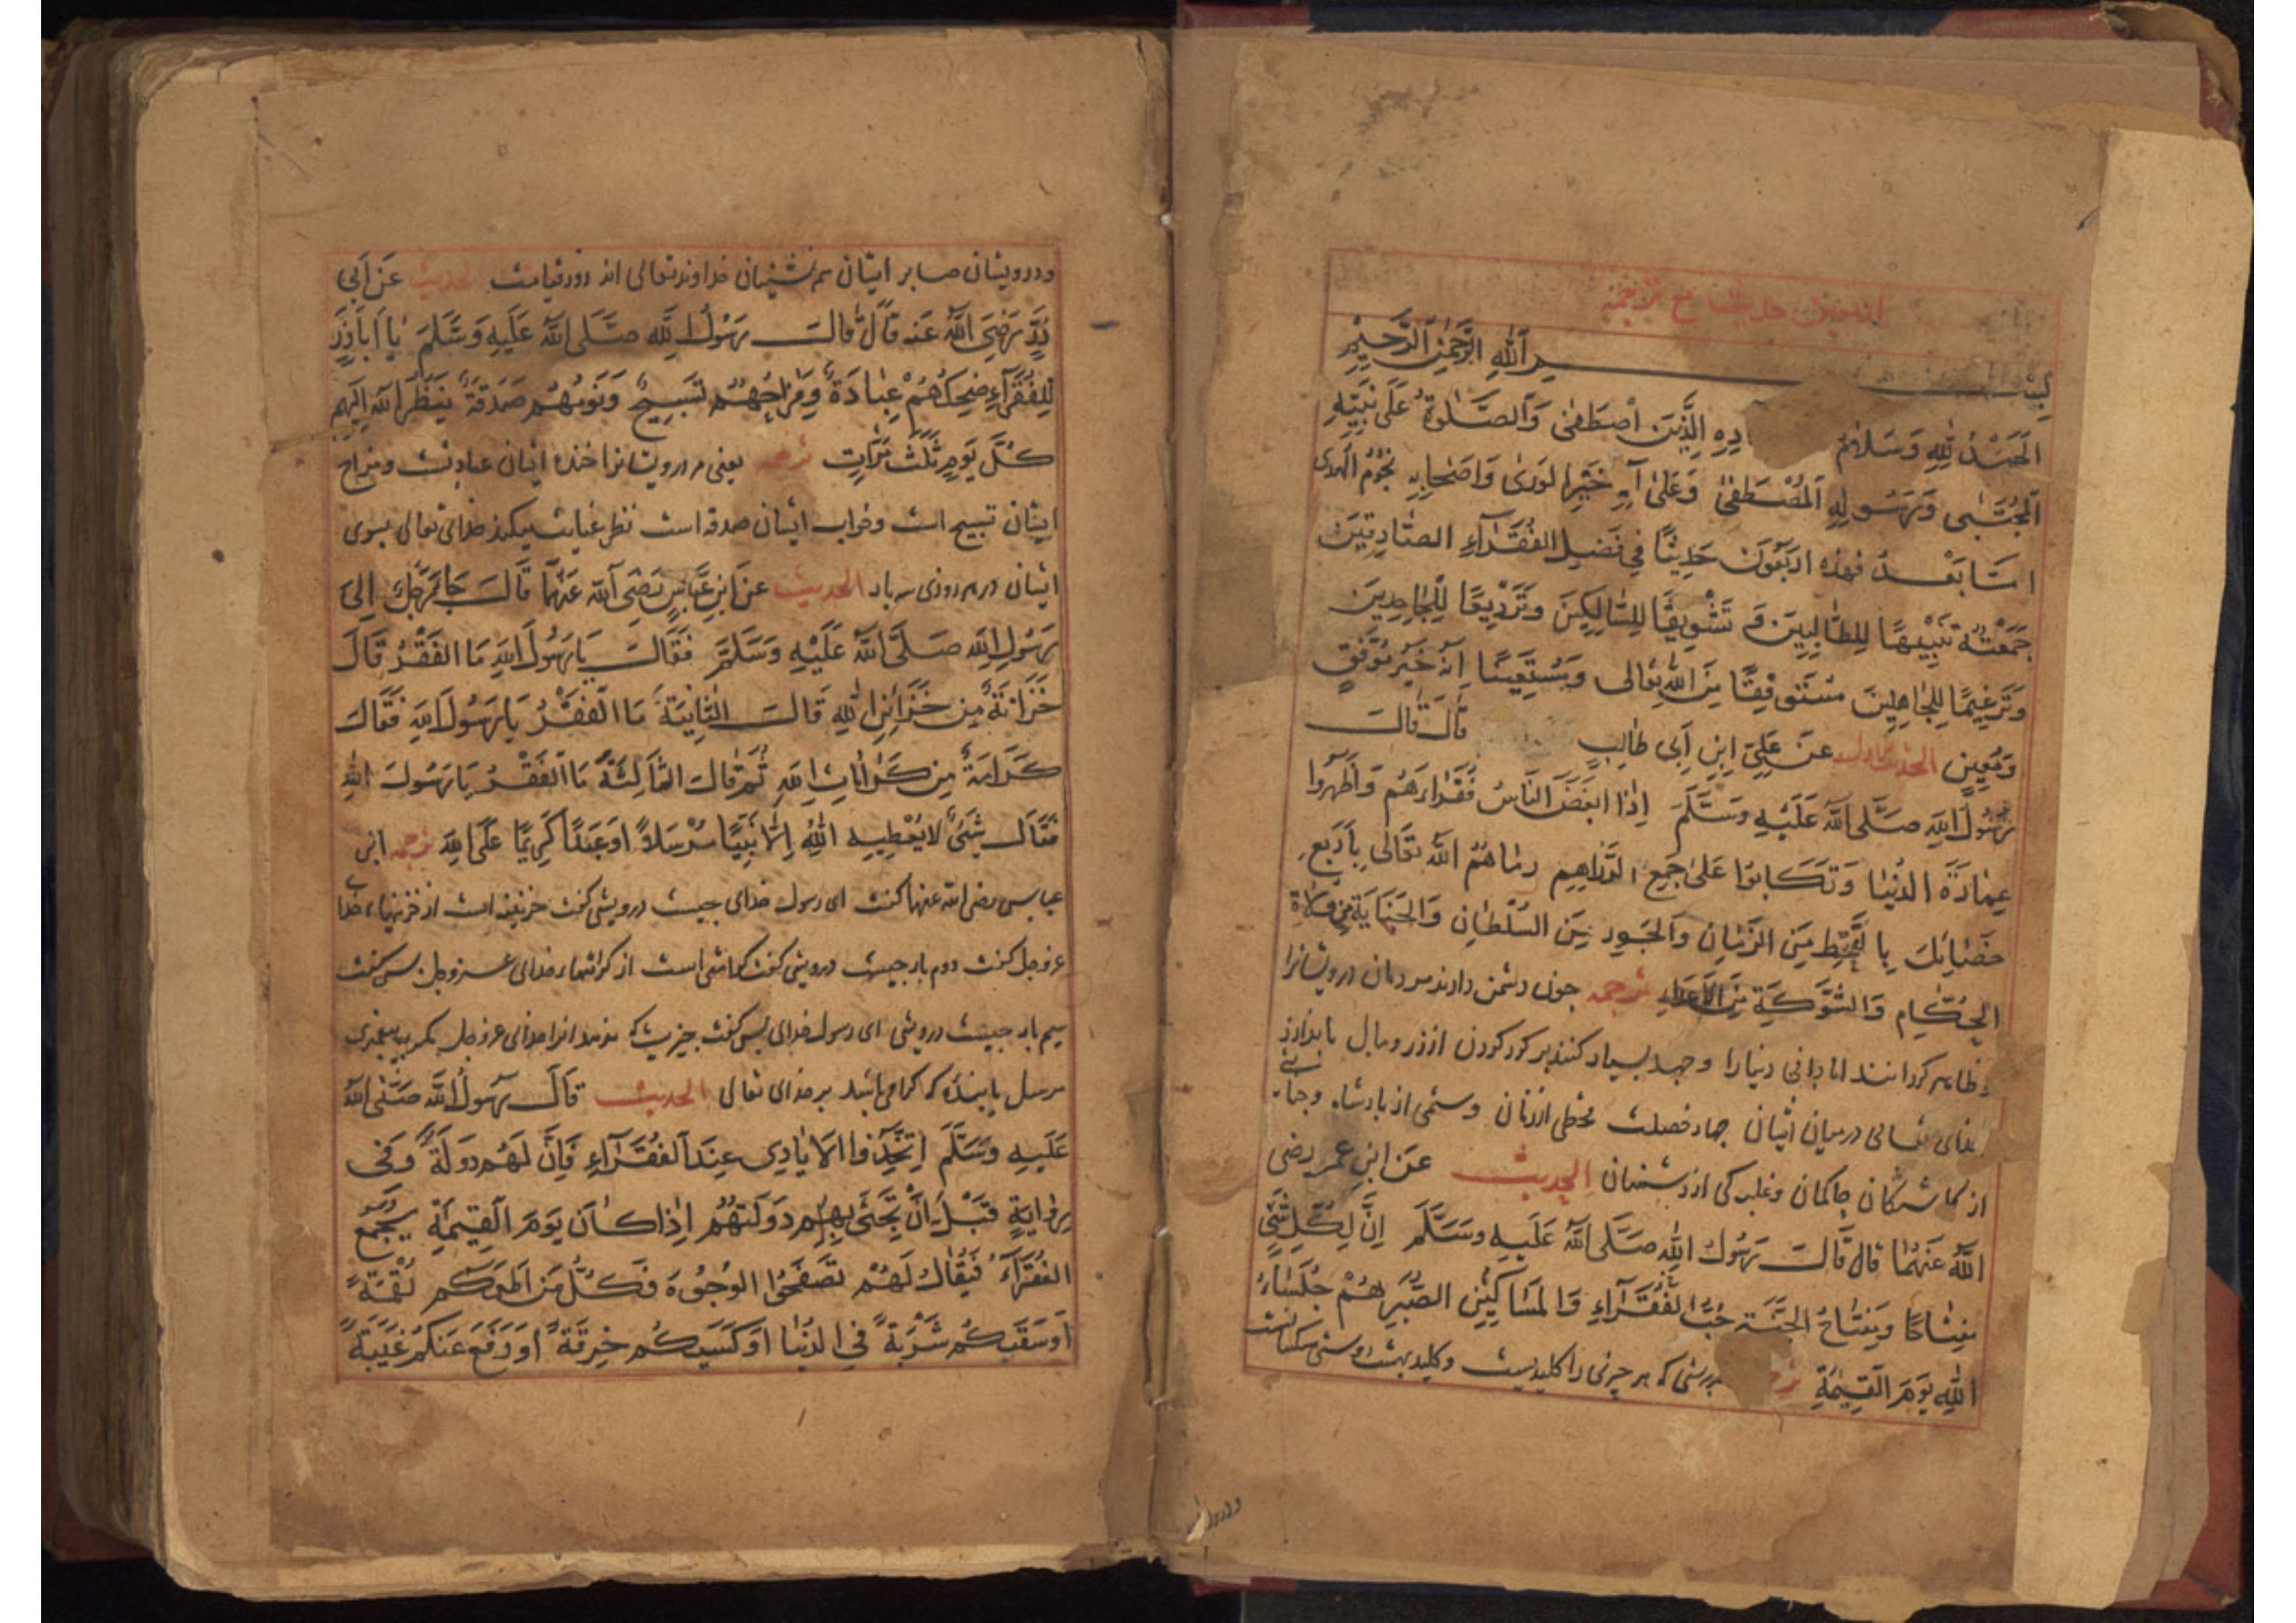 اربعین حدیث مع ترجمه
بسم الله الرحمن الرحیم
الحمد لله وسلام الذین اصطفی والصلوة علی نبیه
المجتبی ورسوله المصطفی وعلی آله خیر الوری واصحابه نجوم الهدی
اما بعد فهذه اربعون حدیثا فی فضل الفقرآء الصادقین
جمعته تنبیها للطالبین و تشویقا للسالکین وتردیعا للجاحدین
وترغیما للجاهلین مستوفقا من الله تعالی ومستعینا انه خیر موفق
ومعین الحدیث الاول عن علی ابن ابی طالب قال قالت
رسول الله صلی الله علیه وسلم اذا ابغض الناس فقراءهم واظهروا
عمارة الدنیا وتکالبوا علی جمع الدراهم رماهم الله تعالی باربع
خصائل بالقحط من الزمان والجور من السلطان والجنایة من ولاة
الحکام والشوکة من الاعداء ترجمه چون دشمن دارند مردمان درویشانرا
ظاهر کردانند ابادانی دنیارا وجهد بسیار کنند بر کرد کردن از زر ومال باندازد
خدای تعالی درمیان ایشان چهار خصلت قحطی از زمان وستمی از بادشاه
از حاکمان وغلبه کی از دشمنان الحدیث عن ابن عمر رضی
الله عنهما قال قال رسول الله صلی الله علیه وسلم ان لکل شئ
مفتاحا ومفتاح الجنة حب الفقرآء والمساکین الصبر هم جلساء
الله یوم القیمة بدرستی که هر چیزی را کلیدیست وکلید بهشت دوستی مسکنانست
ودرویشان
ودرویشان صابر ایشان هم نشینان خداوند تعالی اند روز قیامت الحدیث عن ابی
ذر رضی الله عنه قال قال رسول الله صلی الله علیه وسلم یا اباذر
للفقرآء ضحکهم عبادة ومزاحهم تسبیح ونومهم صدقة ینظر الله الیهم
کل یوم ثلث مرات ترجمه یعنی مر درویشانرا خنده ایشان عبادتست ومزاح
ایشان تسبیح است وخواب ایشان صدقه است نظر عنایت میکند خدای تعالی بسوی
ایشان در هر روزی سه بار الحدیث عن ابن عباس رضی الله عنهما قال جاء رجل الی
رسول الله صلی الله علیه وسلم فقال یا رسول الله ما الفقر قال
خزانة من خزائن الله قال الثانیة ما الفقر یا رسول الله فقال
کرامة من کرامات الله ثم قال الثالثة ما الفقر یا رسول الله
فقال شئ لا یعطیه الله الا نبیا مرسلا او عبدا کریما علی الله ترجمه ابن
عباس رضی الله عنهما کفت ای رسول خدای چیست درویشی کفت خزینه است از خزینهاء خدا
عزوجل کفت دوم بار چیست درویشی کفت کرامتی است از کرامتهاء خدای عزوجل پس کفت
سیم بار چیست درویشی ای رسول خدای پس کفت چیزیست که ندهد انرا خدای عزوجل مکر به پیغمبری
مرسل یا بندهٔ که کرامی باشد بر خدای تعالی الحدیث قال رسول الله صلی الله
علیه وسلم اتخذوا الایادی عند الفقرآء فان لهم دولة وفی
روایة قبل ان تجئ بهم دولتهم اذا کان یوم القیمة یجمع
الفقرآء فیقال لهم تصفحوا الوجوه فکل من اطعمکم لقمة
او سقیکم شربة فی الدنیا او کسیکم خرقة او دفع عنکم غیبة